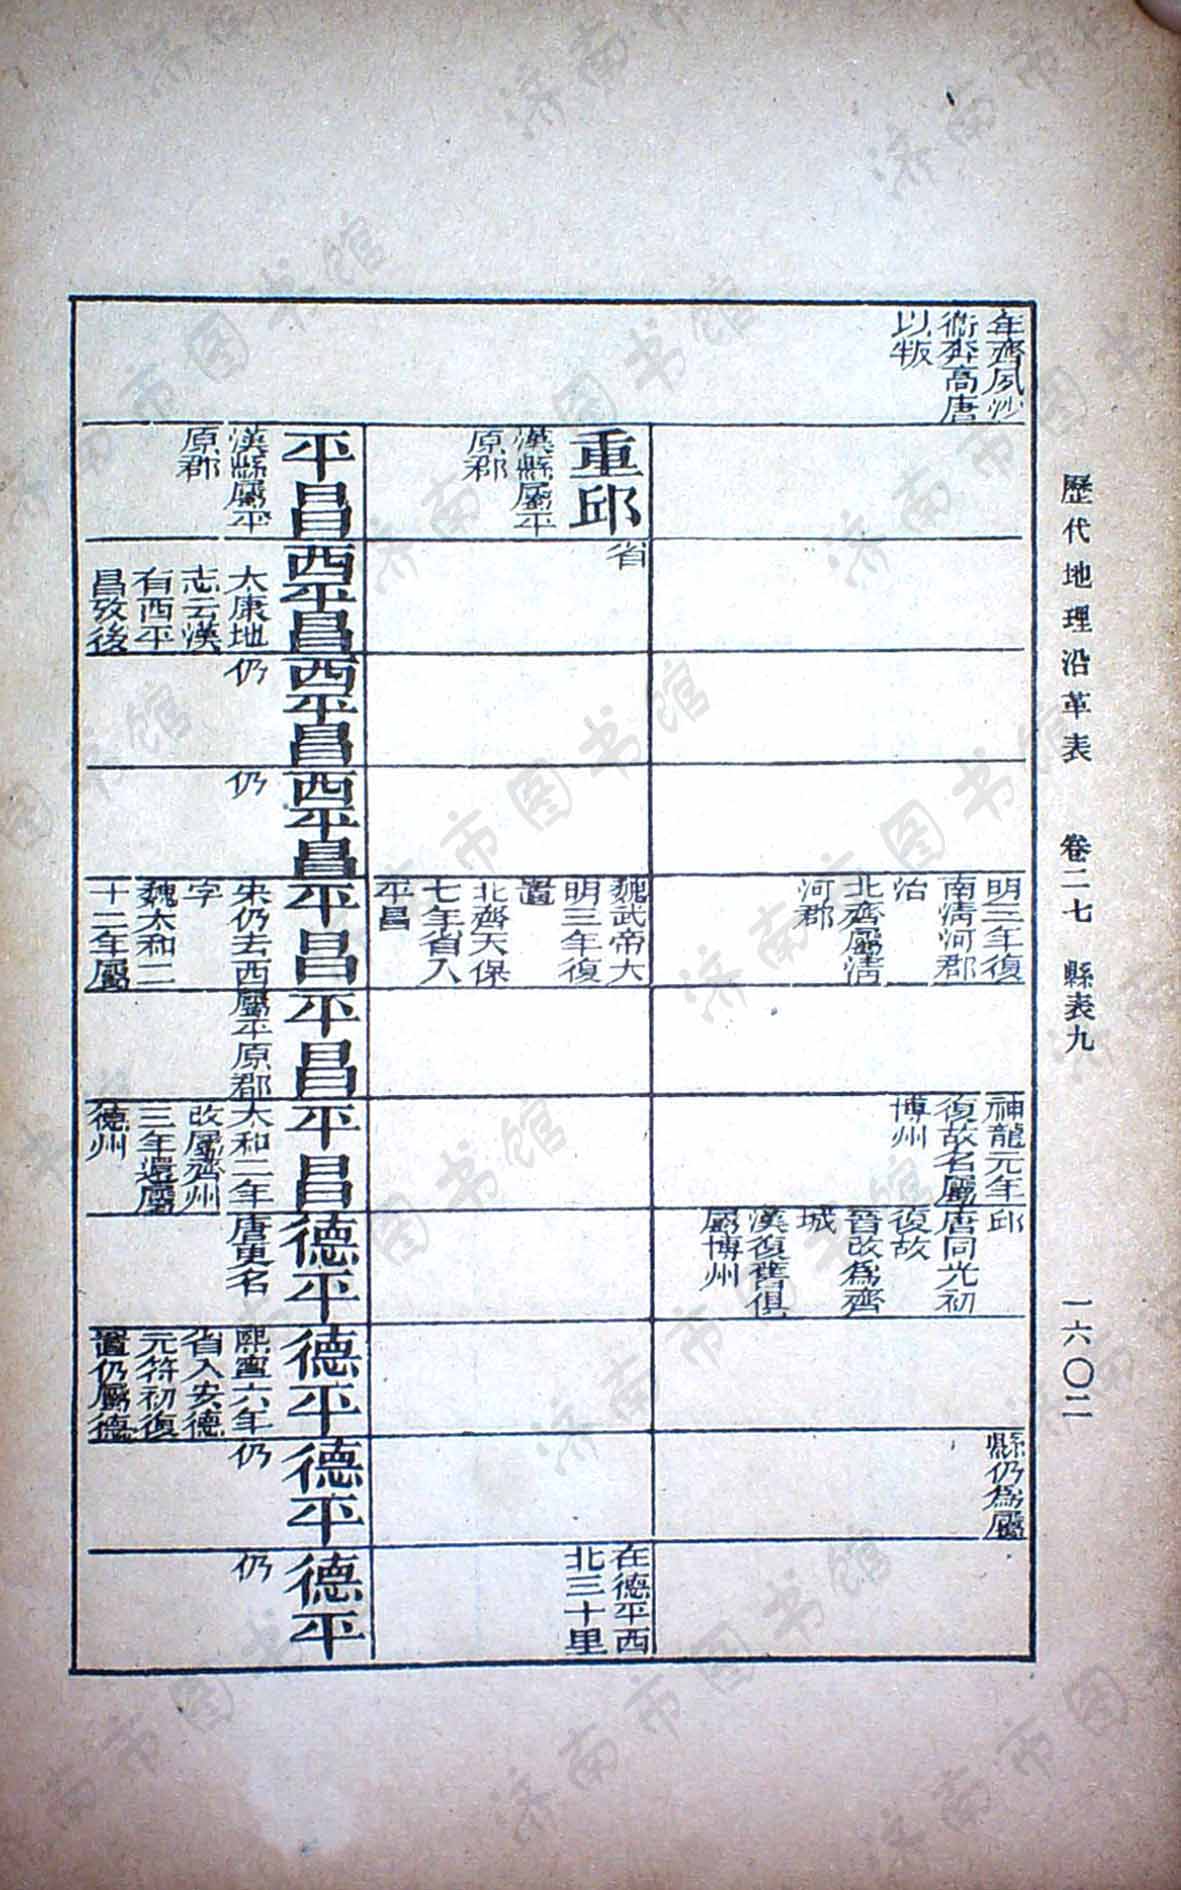 歷代地理沿革表 卷二七 縣表九 一六〇二
年齊夙沙
衞奔高唐
以叛
明三年復
南清河郡
治
北齊屬清
河郡
神龍元年
復故名屬
博州
邱
唐同光初
復故
晉改爲齊
城
漢復舊俱
屬博州
縣仍爲屬
重邱
漢縣屬平
原郡
省
魏武帝大
明三年復
置
北齊天保
七年省入
平昌
在德平西
北三十里
平昌
漢縣屬平
原郡
西平昌
太康地
志云漢
有西平
昌攷後
西平昌
仍
西平昌
仍
平昌
宋仍去西
字
魏太和二
十二年屬
平昌
屬平原郡
平昌
大和二年
改屬齊州
三年還屬
德州
德平
唐更名
德平
熙寧六年
省入安德
元符初復
置仍屬德
德平
仍
德平
仍
济南市图书馆